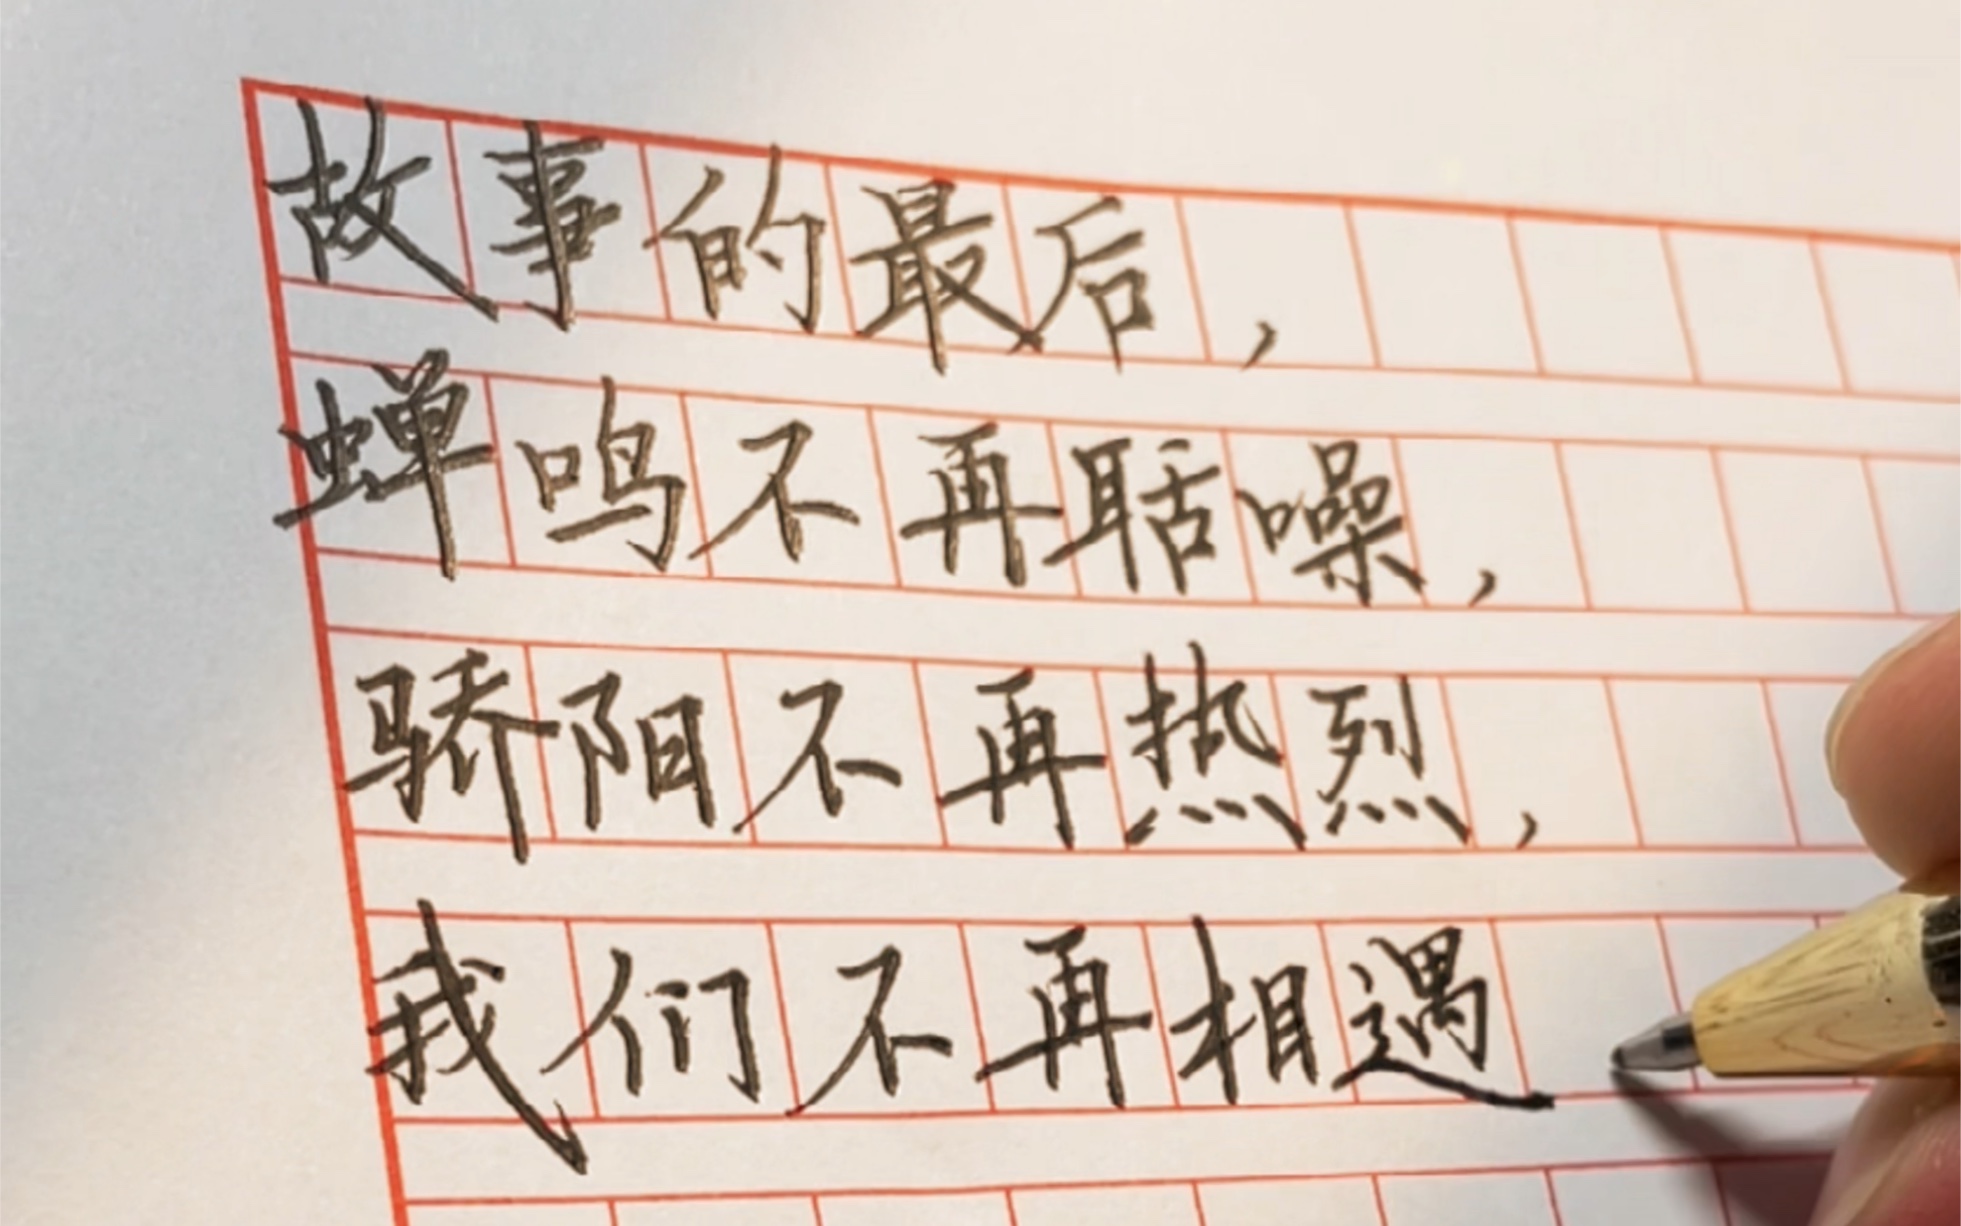 故事的最后，
蝉鸣不再聒噪，
骄阳不再热烈，
我们不再相遇